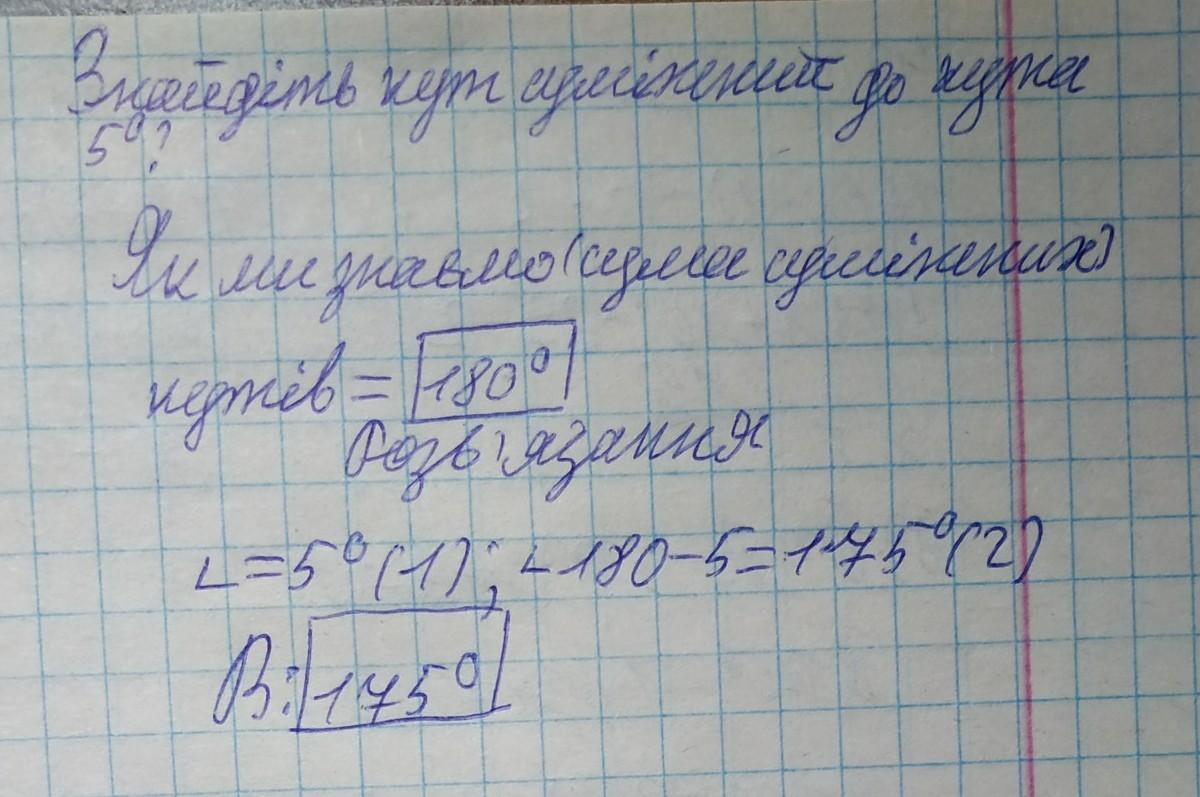 Знайдіть кут суміжний до кута
5°?
Як ми знаємо (сума суміжних)
кутів = 180°
Розв'язання
∟=5°(1); ∟180-5=175°(2)
В: 175°